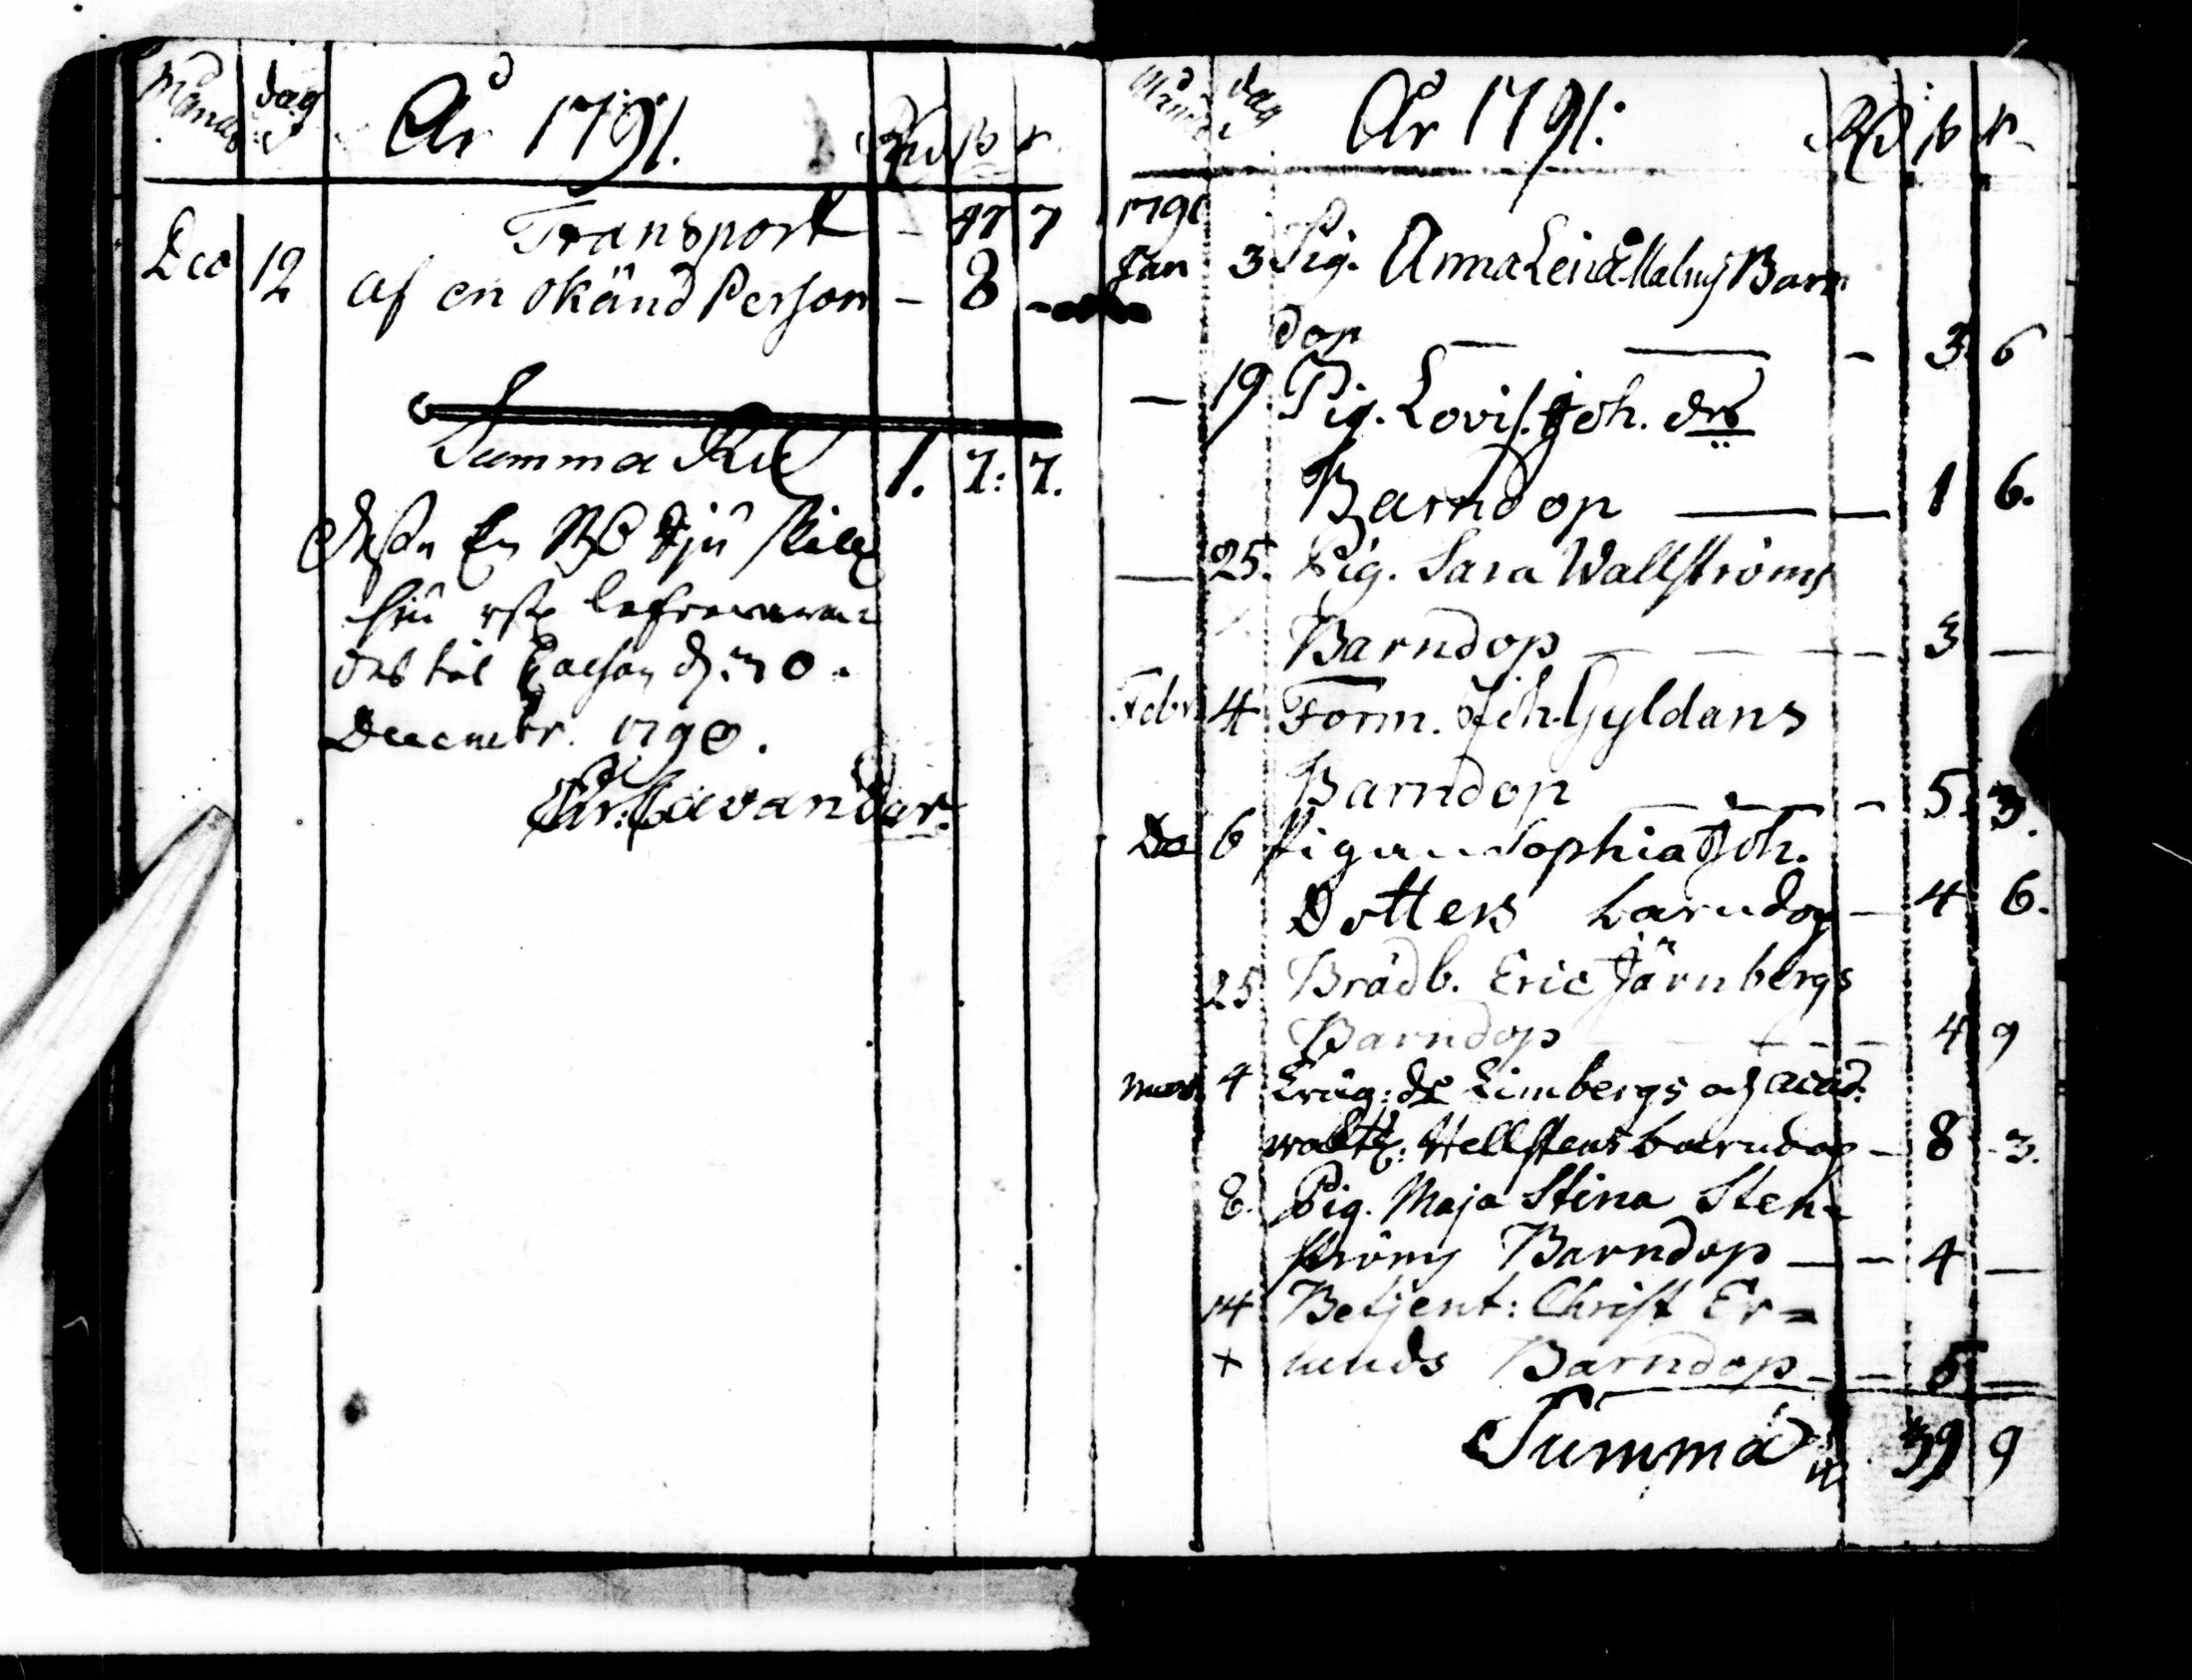 Månad dag År 1791. Rd ß r
Transport - 47 7
Dec 12 af en okänd Person - 8 -
Summa Rd 1. 7: 7.
Dessa En Rd Sju skill
Sju rst lefvererade
des til Cassan d. 30.
Decembr. 1790.
Cavander.
Månad dag År 1791: Rd ß r
1790
Jan 3 Pig. Anna Lena Malms Barn
dop - 3. 6
19 Pig. Lovis. Joh. drs
Barndop - 1 6.
25. Pig. Sara Wallströms
Barndop - 3 -
Febr 4 Form. Joh. Gyldans
Barndop - 5. 3.
Do 6 Pigan Sophia Joh.
Dotters barndop - 4 6.
25 Brädb. Eric Järnbergs
Barndop - 4 9
Mars 4 Limbergs och
Hellstens barndop - 8 3.
8. Pig. Maja Stina Sten=
ströms Barndop - 4 -
14 Betjent: Christ Er=
+ lunds Barndop - 5 -
Summa 39 9